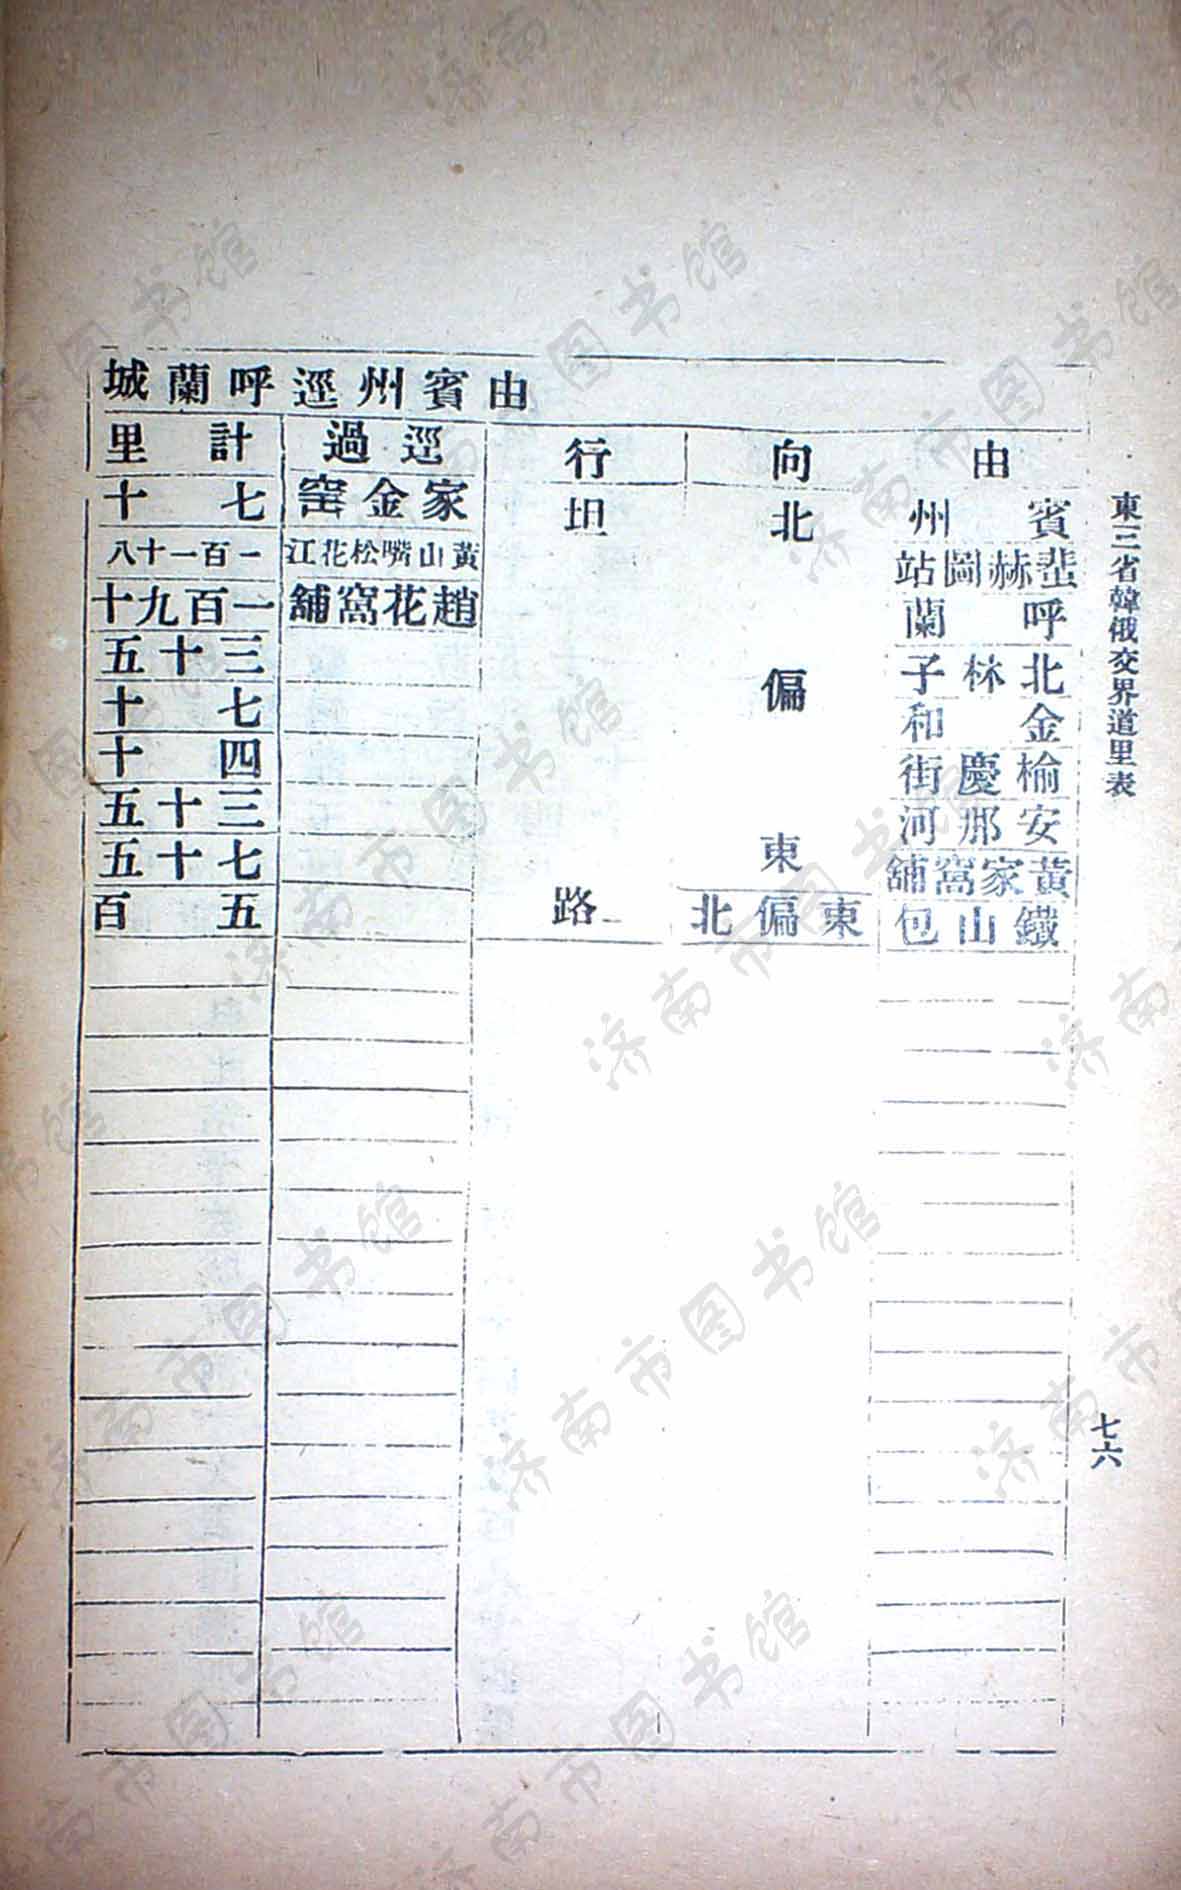 東三省韓俄交界道里表
七六
由賓州逕呼蘭城
由 向 行 逕過 計里
賓州 北 坦 家金窑 七十
蜚赫崗站 黃山嘴松花江 一百一十八
呼蘭 趙花窩舖 一百九十
北林子 偏 三十五
金和 七十
榆慶街 四十
安那河 三十五
黃家窩舖 東 七十五
鐵山包 東偏北 路 五百
济南市图书馆